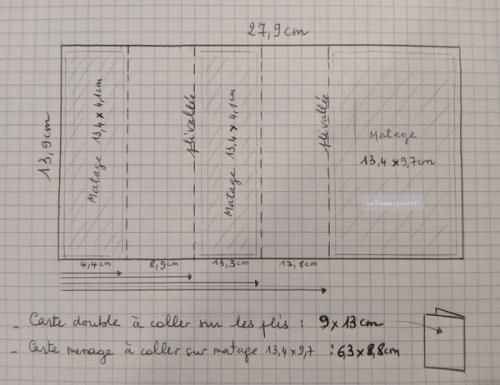 27,9cm
13,9cm
Matage 13,4 x 4,1cm
pli vallée
Matage 13,4 x 4,1cm
pli vallée
Matage
13,4 x 9,7cm
4,4cm
8,9cm
13,3cm
17,8cm
- Carte double à coller sur les plis : 9 x 13cm
- Carte menage à coller sur matage 13,4 x 9,7 : 6,3 x 8,8cm